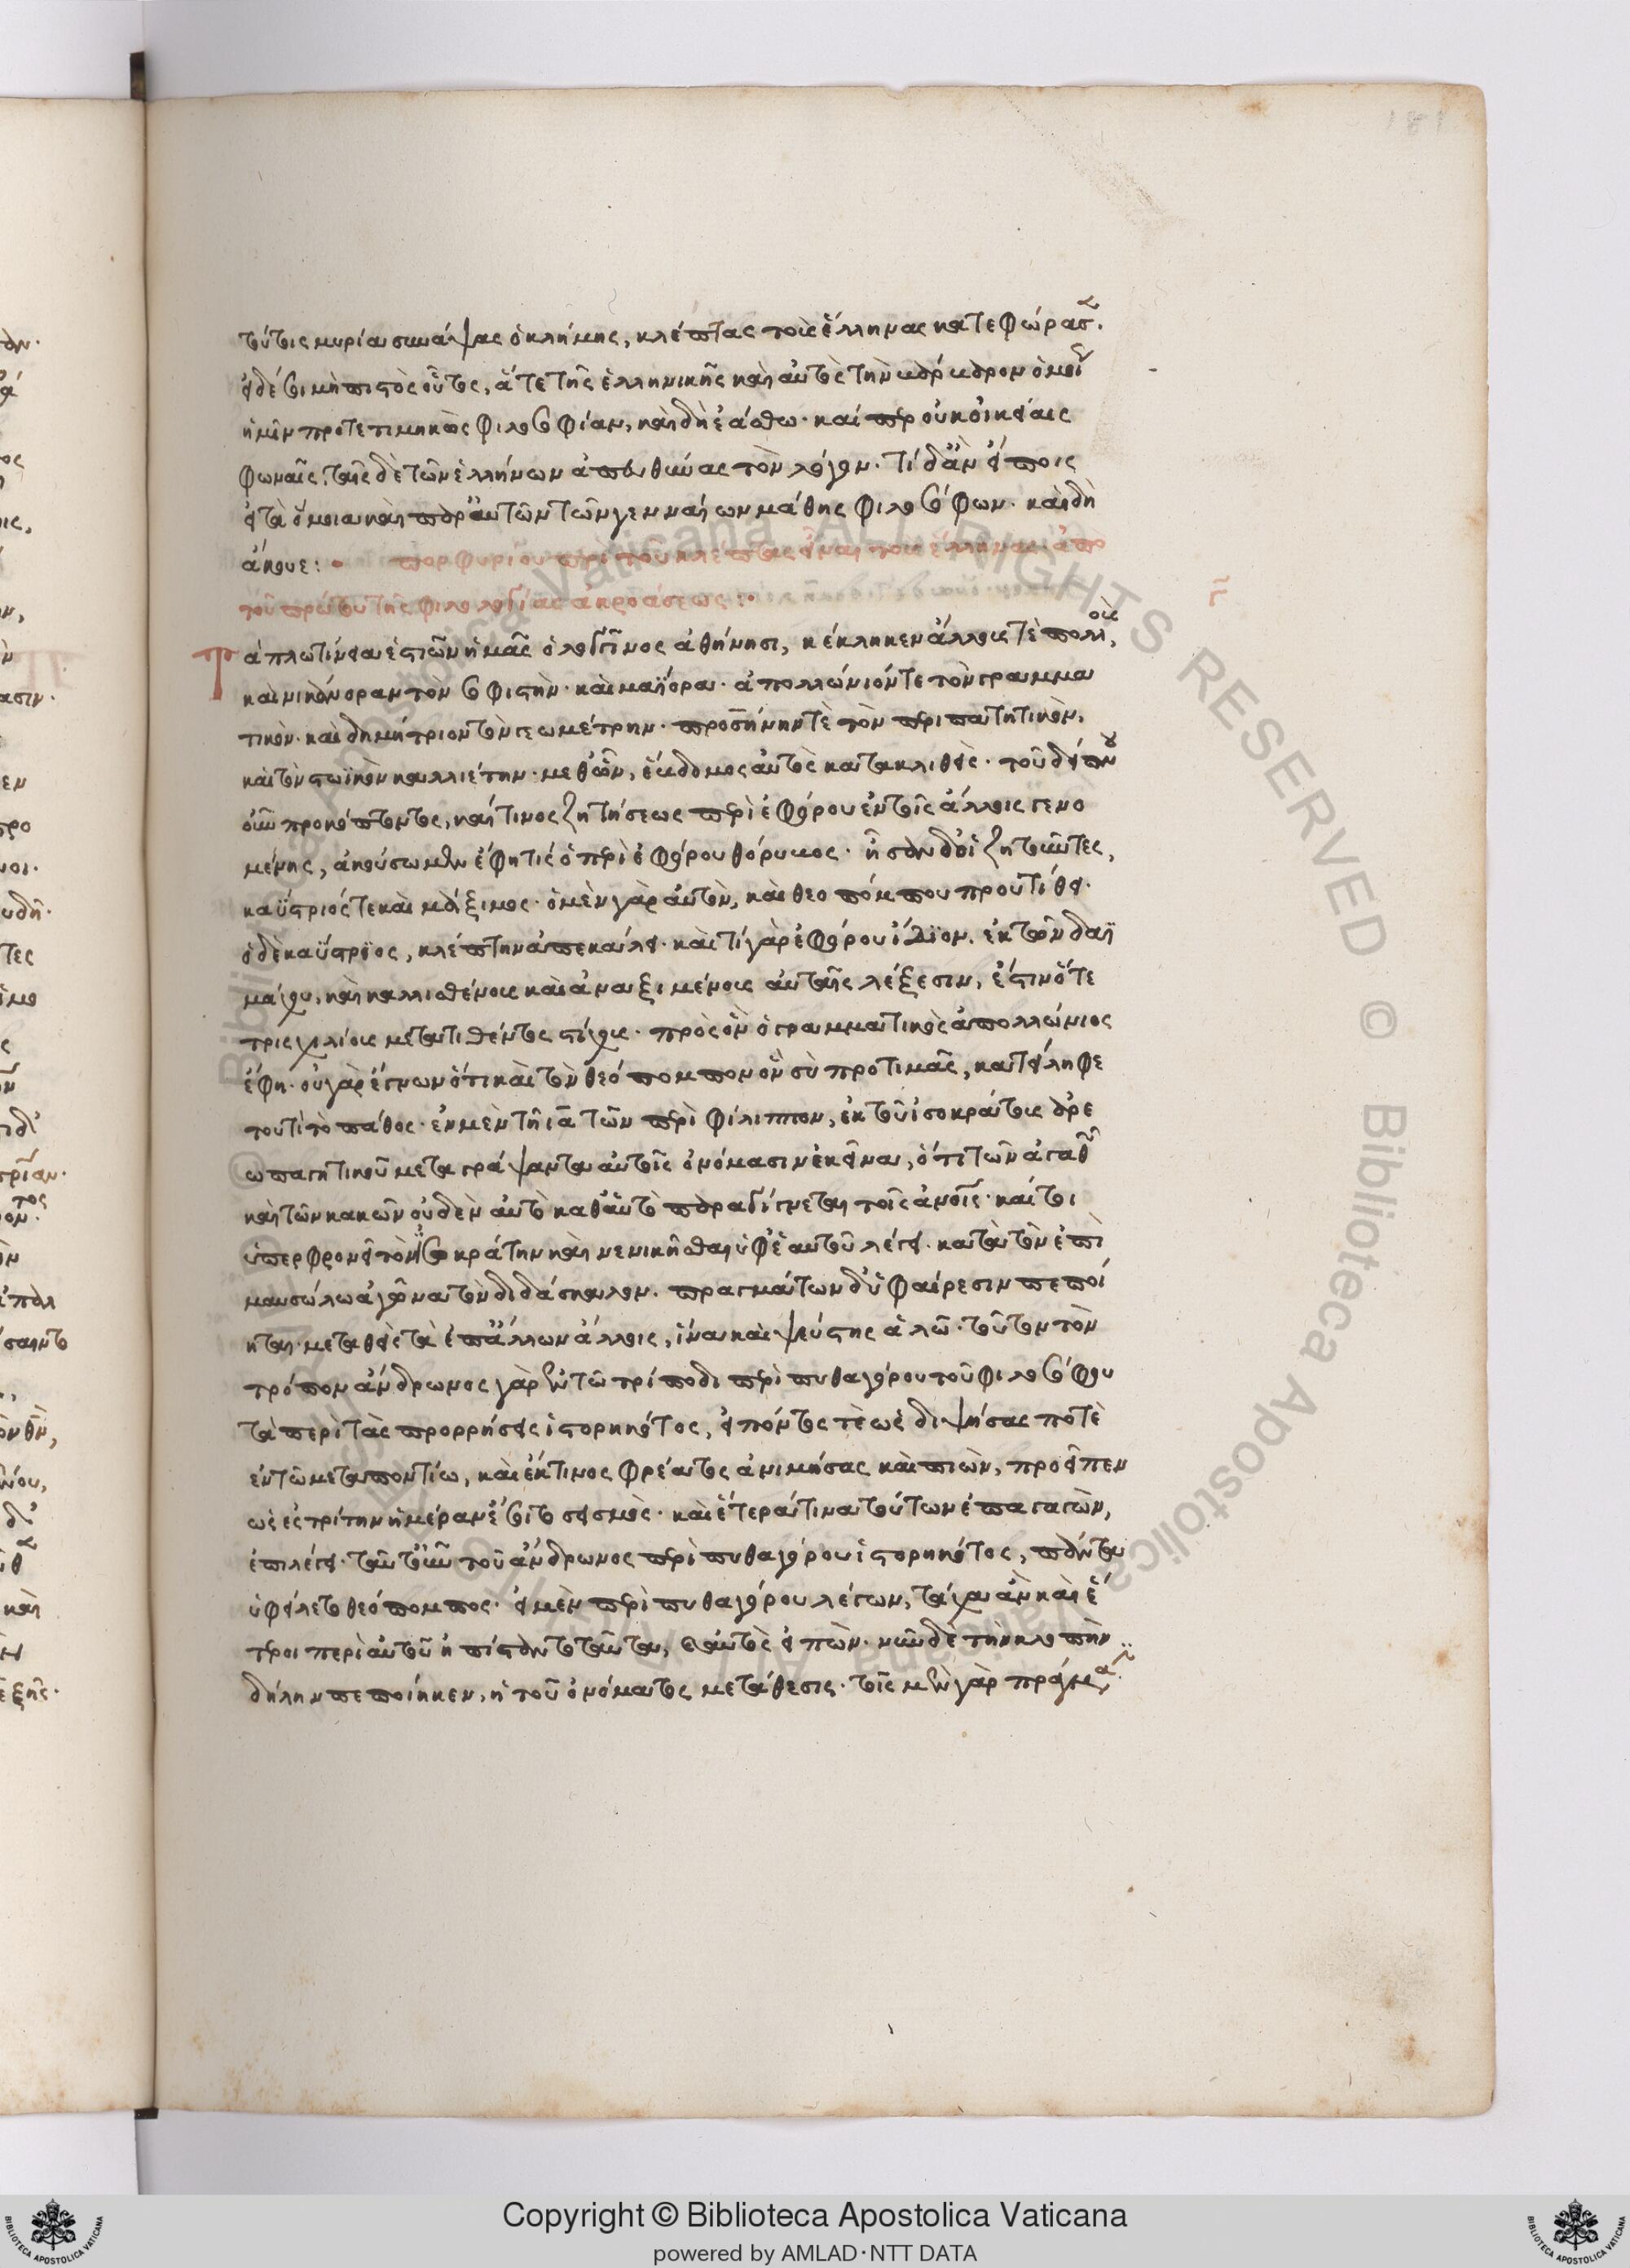 τούτοις μυρία συνάψας ὁ κλήμης, κλέπτας τοὺς ἕλληνας κατεφώρασε.
εἰ δέ σοι μὴ πιστὸς οὗτος, ἅτε τῆς ἑλληνικῆς καὶ αὐτὸς τὴν βάρβαρον ὁμοῦ
ἡμῖν προτετιμηκὼς φιλοσοφίαν, καὶ δὴ ἐάσθω· καίπερ οὐκ οἰκείαις
φωναῖς, ταῖς δὲ τῶν ἑλλήνων ἀπευθύνας τὸν λόγον. τί δ' ἂν εἴποις
εἰ τὰ ὅμοια καὶ παρ' αὐτῶν τῶν γενναίων μάθης φιλοσόφων. καὶ δὴ
ἄκουε:
πορφυρίου περὶ τοῦ κλέπτας εἶναι τοὺς ἕλληνας· ἀπὸ
τοῦ πρώτου τῆς φιλολόγου ἀκροάσεως:
Τὰ πλωτίνεια ἑστιῶν ἡμᾶς ὁ λογγῖνος ἀθήνησι, κέκληκεν ἄλλους τὲ πολλοὺς,
καὶ νικάγοραν τὸν σοφιστὴν· καὶ μαΐορα· ἀπολλώνιόν τε τὸν γραμμα
τικὸν· καὶ δημήτριον τὸν γεωμέτρην· προσήνην τὲ τὸν περιπατητικὸν,
καὶ τὸν στωϊκὸν καλλιέτην· μεθ' ὧν, ἕβδομος αὐτὸς κατακλιθεὶς· τοῦ δείπνου
οὖν προκόπτοντος, καί τινος ζητήσεως περὶ ἐφόρου ἐν τοῖς ἄλλοις γενο
μένης, ἀκούσωμεν ἔφη τίς ὁ περὶ ἐφόρου θόρυβος· ἦσαν δ' οἱ ζητοῦντες,
καΰστριός τε καὶ μάξιμος· ὁ μὲν γὰρ αὐτὸν, καὶ θεοπόμπου προὐτίθει·
ὁ δὲ καΰστριος, κλέπτην ἀπεκάλει· καὶ τί γὰρ ἐφόρου ἴδιον. ἐκ τῶν δαϊ
μάχου, καὶ καλλισθένους καὶ ἀναξιμένους αὐταῖς λέξεσιν, ἔστιν ὅτε
τρισχιλίους μετατιθέντος στίχους· πρὸς ὃν ὁ γραμματικὸς ἀπολλώνιος
ἔφη· οὐ γὰρ ἔγνων ὅτι καὶ τὸν θεόπομπον ὃν σὺ προτιμᾶς, κατείληφε
τουτὶ τὸ πάθος· ἐν μὲν τῇ ιᾶ τῶν περὶ φίλιππον, ἐκ τοῦ ἰσοκράτους ἀρε
ωπαγητικοῦ μεταγράψαντα αὐτοῖς ὀνόμασιν ἐκεῖνα, ὅτι τῶν ἀγαθῶν
καὶ τῶν κακῶν οὐδὲν αὐτὸ καθ' αὑτὸ παραγίγνεται τοῖς ἀνθρώποις· καίτοι
ὑπερφρονεῖ τὸν ἰσοκράτην καὶ νενικῆσθαι ὑφ' ἑαυτοῦ λέγει. κατὰ τὸν ἐπὶ
μαυσώλω ἀγῶνα τὸν διδάσκαλον. πραγμάτων δ' ὑφαίρεσιν πεποί
ηται. μεταθεὶς τὰ ἐπ' ἄλλων ἄλλοις, ἵνα καὶ ψεύστης ἁλῶ· τοῦτον τὸν
τρόπον ἄνδρωνος γὰρ ἐν τῶ τρίποδι περὶ πυθαγόρου τοῦ φιλοσόφου
τὰ περὶ τὰς προρρήσεις ἱστορηκότος, εἰπόντος τὲ ὡς διψήσας ποτὲ
ἐν τῶ μεταποντίω, καὶ ἔκ τινος φρέατος ἀνιμήσας καὶ πιὼν, προεῖπεν
ὡς εἰς τρίτην ἡμέραν ἔσοιτο σεισμὸς· καὶ ἕτερά τινα τούτων ἐπαγαγὼν,
ἐπιλέγει· ταῦτ' οὖν τοῦ ἄνδρωνος περὶ πυθαγόρου ἱστορηκότος, πάντα
ὑφείλετο θεόπομπος· εἰ μὲν περὶ πυθαγόρου λέγων, τάχα ἂν καὶ ἕ
τεροι περὶ αὐτοῦ ἠπίσταντο ταῦτα, αὐτὸς εἰπών· νῦν δὲ τὴν κλοπὴν
δήλην πεποίηκεν, ἡ τοῦ ὀνόματος μετάθεσις· τοῖς μὲν γὰρ πράγμασι